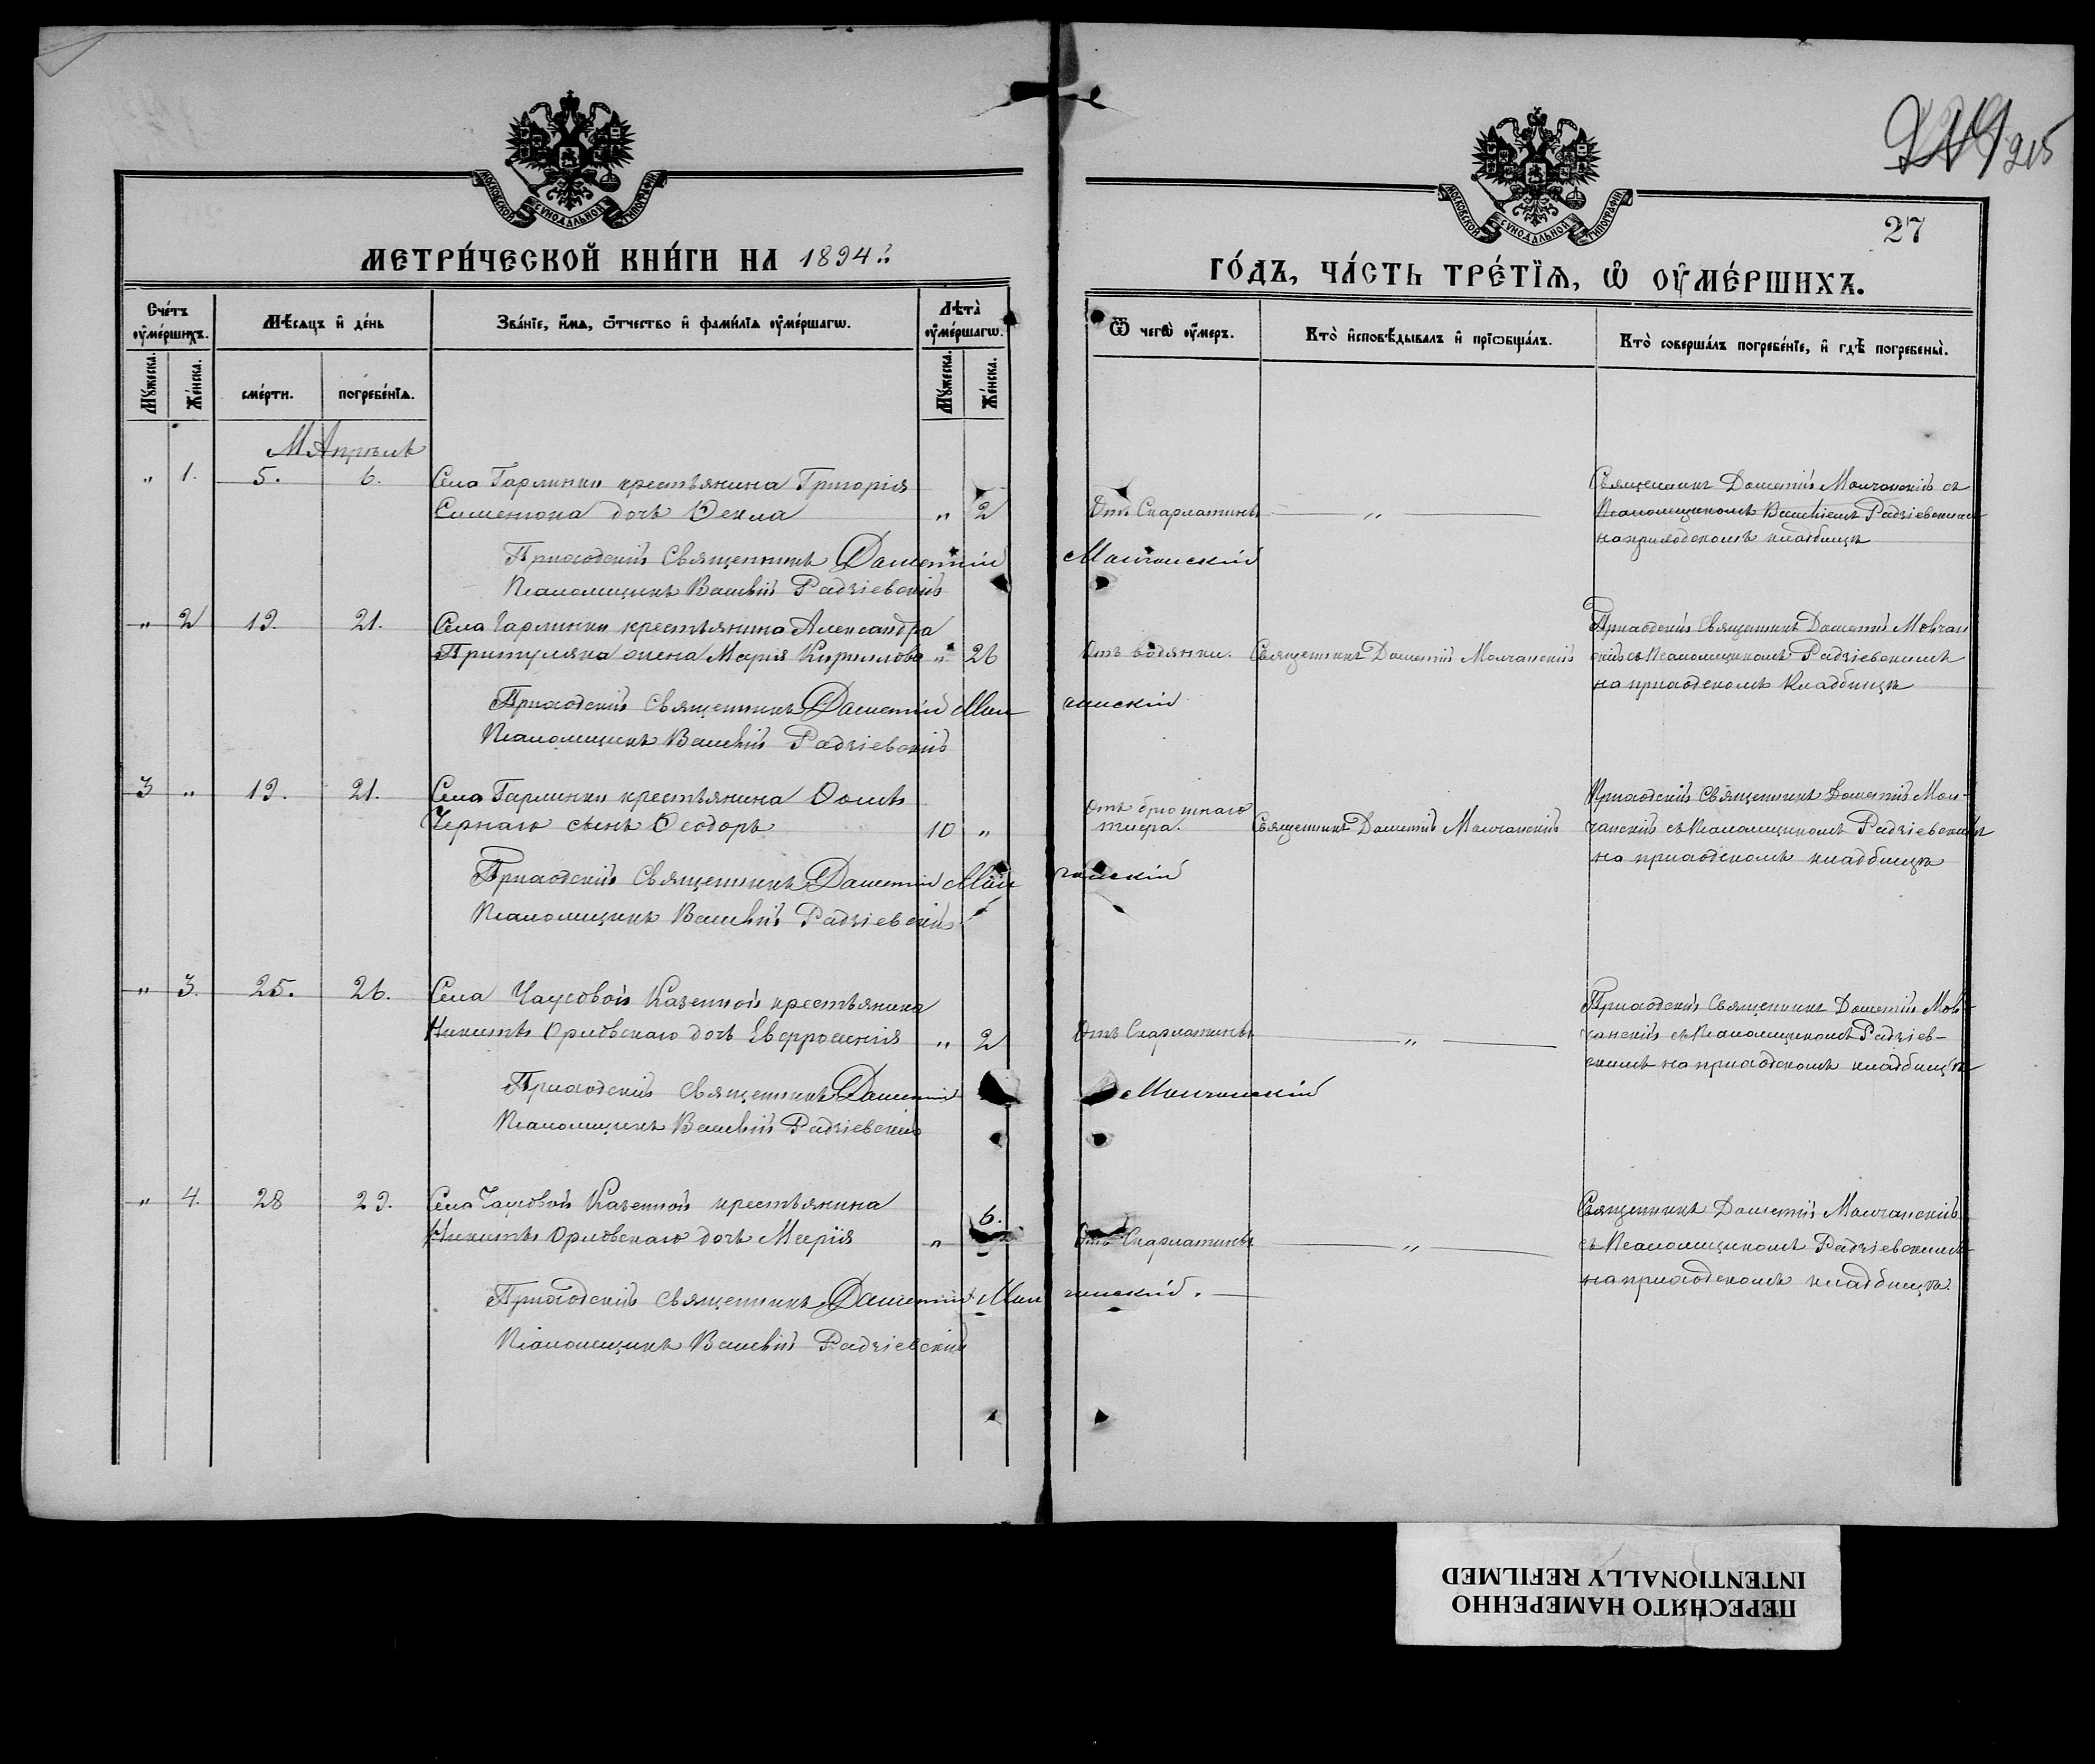 219 215
МОСКОВСКОЙ СУНОДАЛЬНОЙ ТИПОГРАФІИ
МОСКОВСКОЙ СУНОДАЛЬНОЙ ТИПОГРАФІИ
27
МЕТРИ́ЧЕСКОЙ КНИ́ГИ НА 1894
ГО́ДЪ, ЧА́СТЬ ТРЕ́ТЇѦ, Ѡ҆ ОУ҆МЕ́РШИХЪ.
Сче́тъ оу҆ме́ршихъ.
Мꙋ́жеска.
Же́нска.
Мѣ́сѧцъ и҆ де́нь
сме́рти.
погребе́нїѧ.
Зва́нїе, и҆́мѧ, ѻ҆́тчество и҆ фами́лїѧ оу҆ме́ршагѡ.
Лѣта̀ оу҆ме́ршагѡ.
Мꙋ́жеска.
Же́нска.
Ѿ чегѡ̀ оу҆́меръ.
Кто̀ и҆сповѣ́дывалъ и҆ прїѡбща́лъ.
Кто̀ соверша́лъ погребе́нїе, и҆ гдѣ̀ погребены̀.
М. Апрѣль
" 1. 5. 6. Села Гарлинки крестьянина Григорія
Сименюка дочь Ѳекла " 2 Отъ Скарлатины "
Священникъ Дометій Молчанскій съ
Псаломщикомъ Василіемъ Радзіевскимъ
на приходскомъ кладбищѣ
Приходскій Священникъ Дометій Молчанскій
Псаломщикъ Василій Радзіевскій
" 2 19. 21. Села Гарлинки крестьянина Александра
Притуляка жена Марія Кирилова " 26 Отъ водянки. Священникъ Дометій Молчанскій
Приходскій Священникъ Дометій Молчан
скій съ Псаломщикомъ Радзіевскимъ
на приходскомъ кладбищѣ
Приходскій Священникъ Дометій Молчанскій
Псаломщикъ Василій Радзіевскій
3 " 19. 21. Села Гарлинки крестьянина Ѳомы
Чернаго сынъ Ѳеодоръ 10 " Отъ брюшнаго
тифа. Священникъ Дометій Молчанскій
Приходскій Священникъ Дометій Мол-
чанскій съ Псаломщикомъ Радзіевскимъ
на приходскомъ кладбищѣ
Приходскій Священникъ Дометій Молчанскій
Псаломщикъ Василій Радзіевскій
" 3. 25. 26. Села Чаусовой Казенной крестьянина
Никиты Орловскаго дочь Евфросинія " 2 Отъ Скарлатины "
Приходскій Священникъ Дометій Мол-
чанскій съ Псаломщикомъ Радзіев-
скимъ на приходскомъ кладбищѣ
Приходскій Священникъ Дометій Молчанскій
Псаломщикъ Василій Радзіевскій
" 4. 28 29. Села Чаусовой Казенной крестьянина
Никиты Орловскаго дочь Марія " 6. Отъ Скарлатины "
Священникъ Дометій Молчанскій
съ Псаломщикомъ Радзіевскимъ
на приходскомъ кладбищѣ.
Приходскій Священникъ Дометій Молчанскій.
Псаломщикъ Василій Радзіевскій
ПЕРЕСНЯТО НАМЕРЕННО
INTENTIONALLY REFILMED